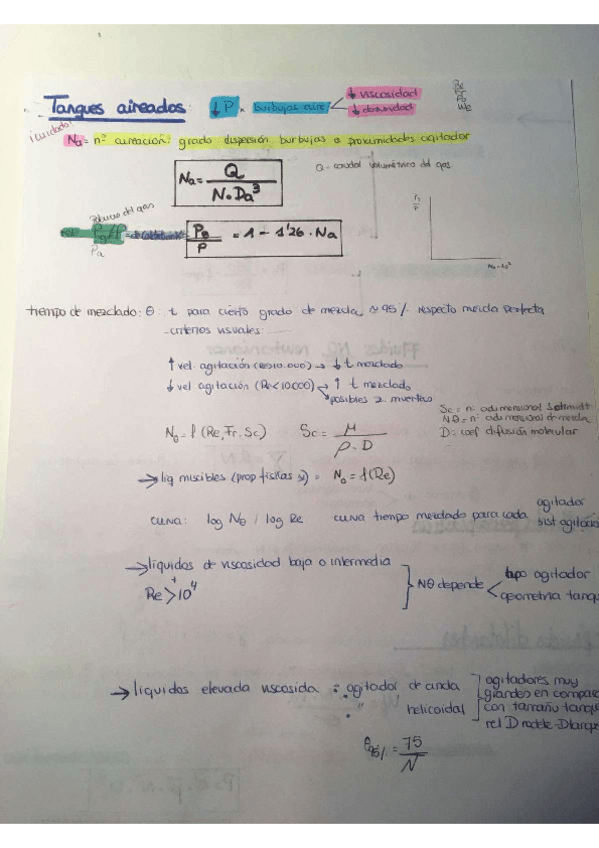 Tanques aireados: ↓ P × burbujas aire < ↓ viscosidad
↓ densidad
¡cuidado!
Na = nº aireación: grado dispersión burbujas a proximidades agitador
Na = Q / N·Da³
Q = caudal volumétrico del gas
Pg / P = 1 - 1'26 · Na
Pa
Pg / P
tiempo de mezclado: θ: t para cierto grado de mezcla, ≈ 95% respecto mezcla perfecta
- criterios visuales:
↑ vel. agitación (Re>10.000) → ↓ t mezclado
↓ vel agitación (Re<10.000) → ↑ t mezclado
posibles z. muertas
Nθ = f (Re, Fr, Sc)
Sc = μ / ρ·D
Sc = nº adimensional Schmidt
Nθ = nº adimensional de mezcla
D = coef difusión molecular
→ liq miscibles (prop físicas ≈) = Nθ = f(Re)
curva: log Nθ / log Re curva tiempo mezclado para cada agitador
sist agitación
→ líquidos de viscosidad baja o intermedia
Re > 10⁴
Nθ depende < tipo agitador
geometría tanque
→ líquidos elevada viscosida : agitador de ancla
" helicoidal
agitadores muy
grandes en compara
con tamaño tanque
rel D rodete-Dtanque
θ95% = 75 / N